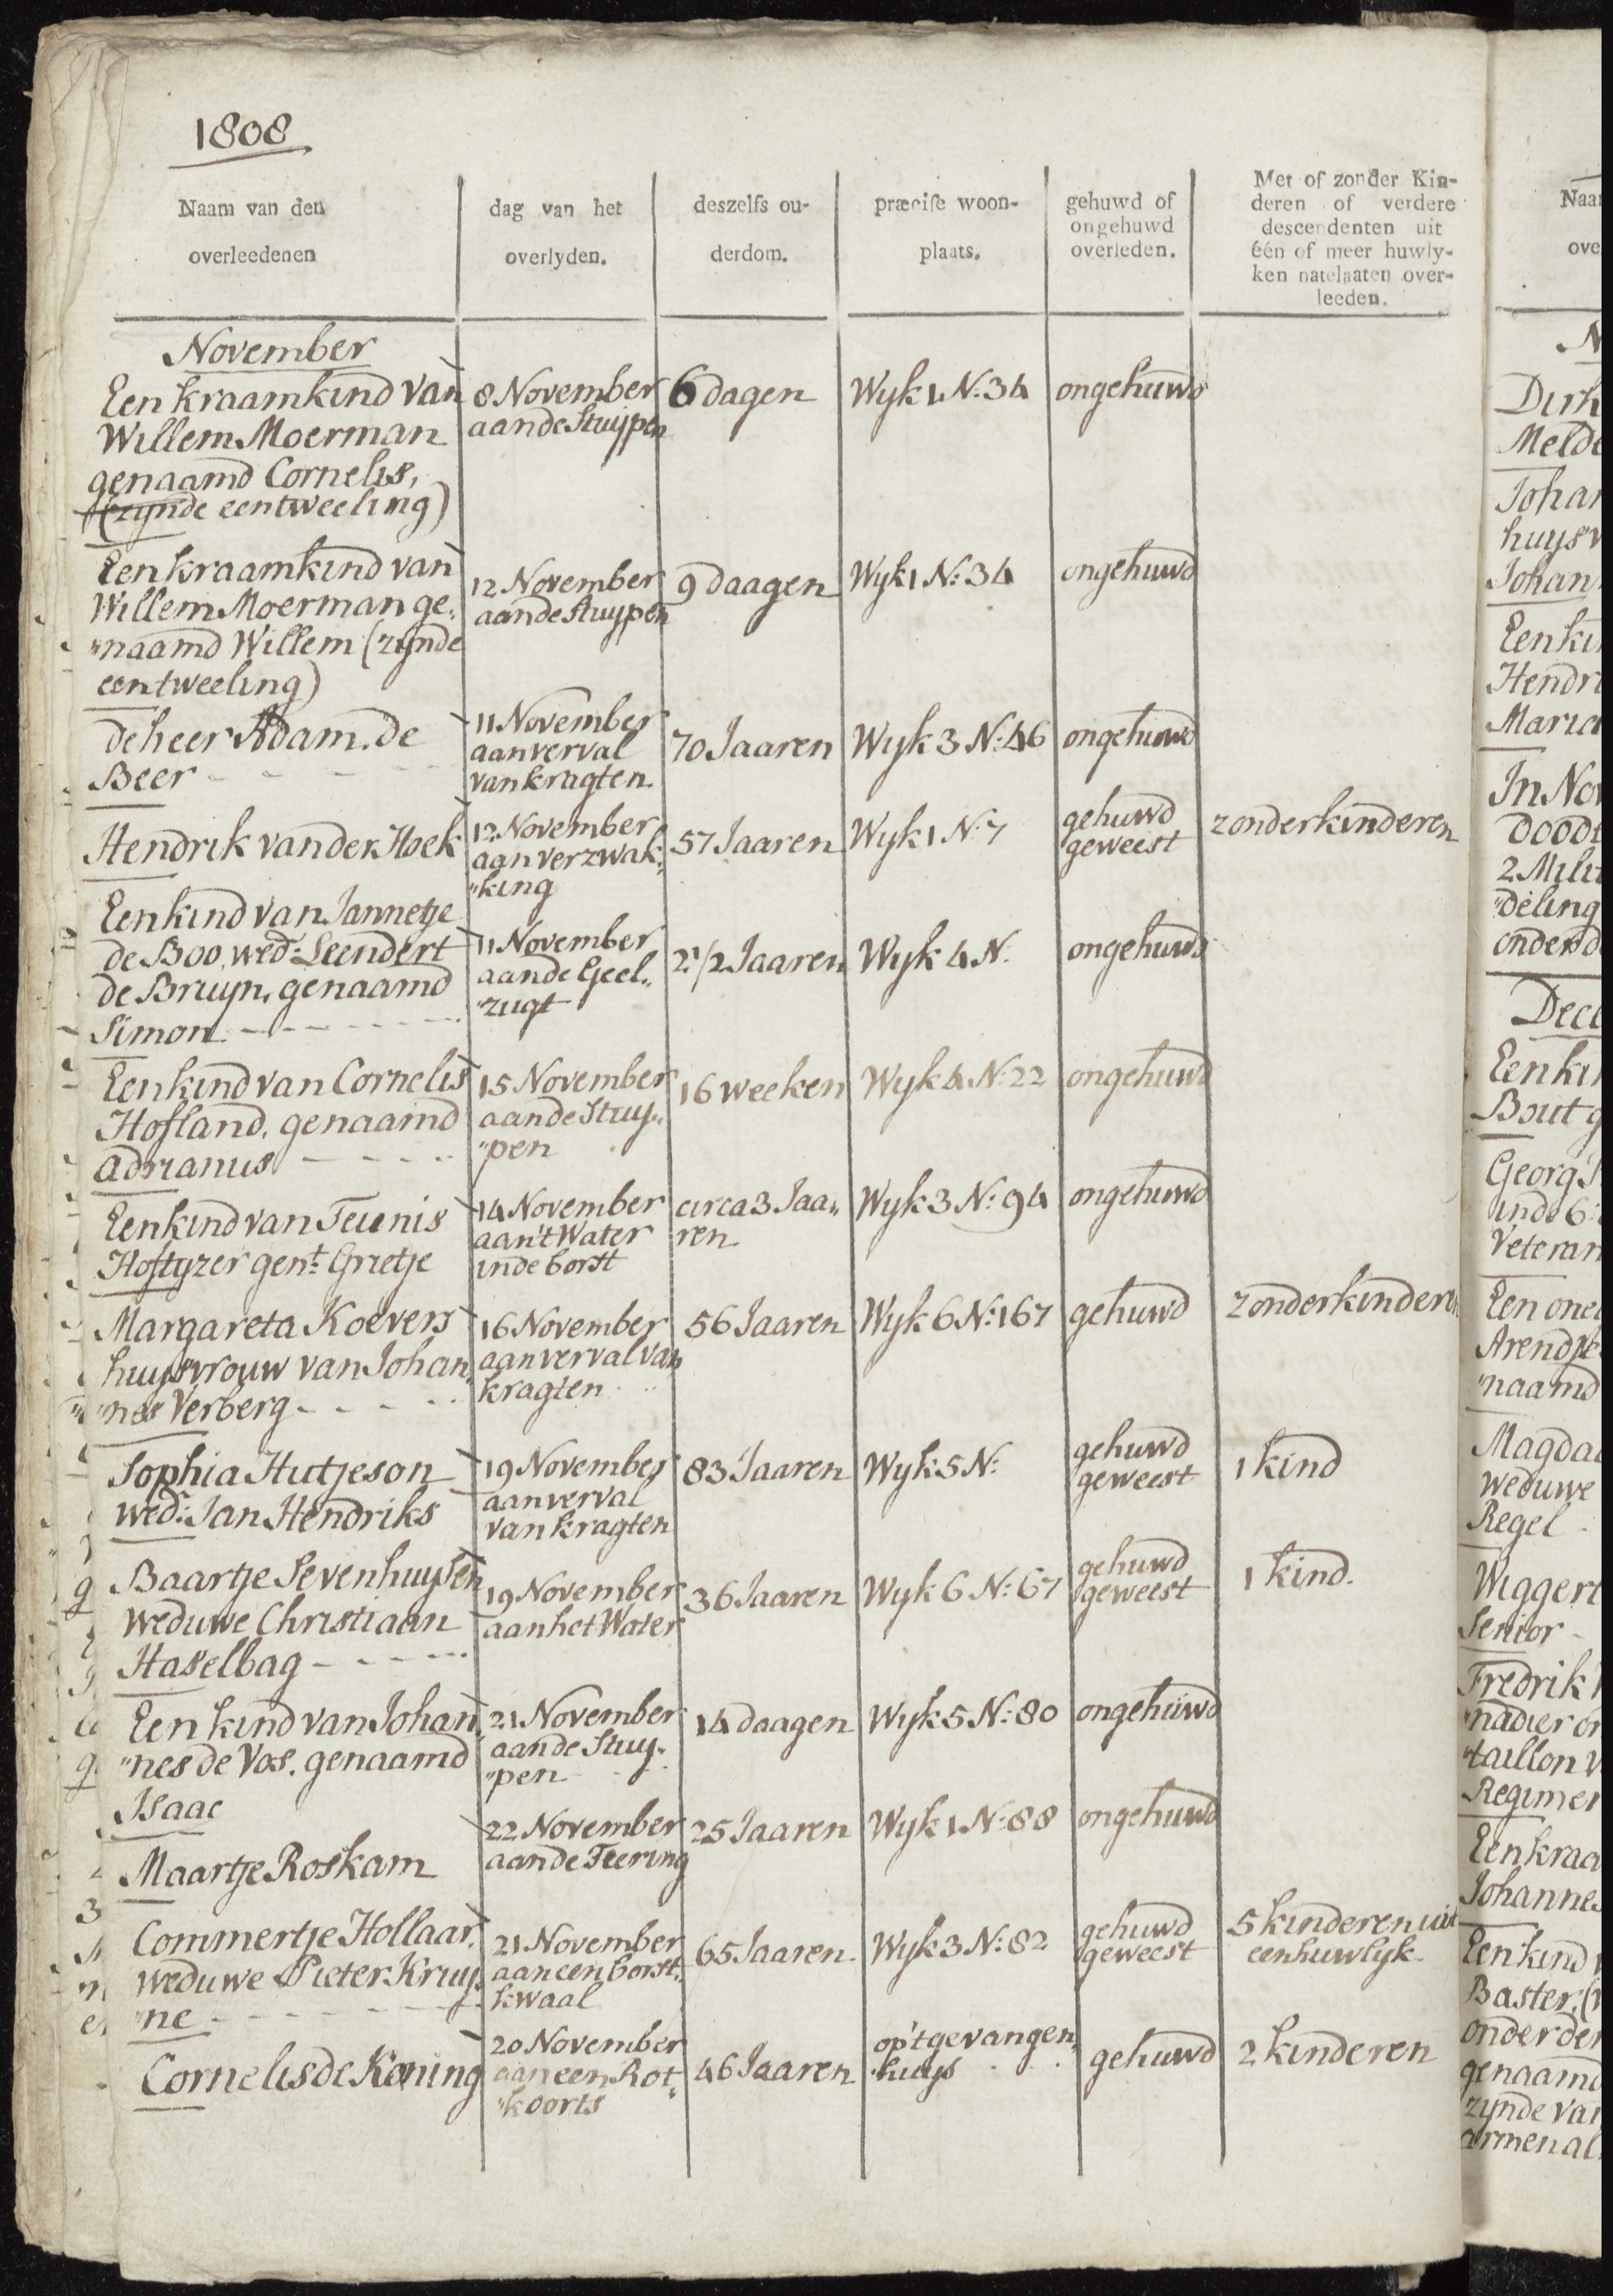 1808
Naam van den
overleedenen
dag van het
overlyden.
deszelfs ou-
derdom.
præcise woon-
plaats.
gehuwd of
ongehuwd
overleden.
Met of zonder Kin-
deren of verdere
descendenten uit
één of meer huwly-
ken natelaaten over-
leeden.
November
Een kraamkind van
Willem Moerman
genaamd Cornelis,
(zijnde een tweeling)
8 November
aan de Stuijpen
6 dagen
Wyk 1, N: 34
ongehuwd
Een kraamkind van
Willem Moerman ge„
„naamd Willem (zijnde
een tweeling)
12 November
aan de Stuypen
9 daagen
Wyk 1 N: 34
ongehuwd
de heer Adam. de
Beer
11 November
aan verval
van kragten.
70 Jaaren
Wyk 3 N: 46
ongehuwd
Hendrik van der Hoek
12 November
aan verzwak„
„king
57 Jaaren
Wyk 1 N: 7
gehuwd
geweest
zonder kinderen
Een kind van Jannetje
de Boo, wed: Leendert
de Bruyn, genaamd
Simon
11 November
aan de Geel„
„zugt
2 1/2 Jaaren
Wyk 4 N:
ongehuwd
Een kind van Cornelis
Hofland, genaamd
Adrianus
15 November
aan de Stuy„
„pen
16 weeken
Wyk 4 N: 22
ongehuwd
Een kind van Teunis
Hoftyzer gent: Grietje
14 November
aan 't Water
in de borst
circa 3 Jaa„
ren
Wyk 3 N: 94
ongehuwd
Margareta Koevers
huysvrouw van Johan„
„nes Verberg
16 November
aan verval van
kragten
56 Jaaren
Wyk 6 N: 167
gehuwd
zonder kinderen
Sophia Hutjeson
wed: Jan Hendriks
19 November
aan verval
van kragten
83 Jaaren
Wyk 5 N:
gehuwd
geweest
1 kind
Baartje Sevenhuysen
weduwe Christiaan
Haselbag
19 November
aan het Water
36 Jaaren
Wyk 6 N: 67
gehuwd
geweest
1 kind.
Een kind van Johan„
„nes de Vos, genaamd
Isaac
21 November
aan de Stuy„
„pen
14 daagen
Wyk 5 N: 80
ongehuwd
Maartje Roskam
22 November
aan de Teering
25 Jaaren
Wyk 1 N: 88
ongehuwd
Commertje Hollaar,
weduwe Pieter Kruy„
„ne
21 November
aan een borst„
kwaal
65 Jaaren
Wyk 3 N: 82
gehuwd
geweest
5 kinderen uit
een huwlyk
Cornelis de Koning
20 November
aan een Rot„
„koorts
46 Jaaren
op 't gevangen„
huys
gehuwd
2 kinderen
Naa
ove
N
Dirk
Melde
Johan
huysv
Johan
Een ki
Hendri
Maria
In Nov
doode
2 Milit
„deling
onder d
Dece
Een ki
Bout g
Georg
ind 6
Veteran
Een one
Arend
„naamd
Magda
weduwe
Regel
Wiggert
Senior
Fredrik
„nadier
„taillon
Regimen
Een kraa
Johannes
Een kind
Baster, (
onder der
genaamd
zynde van
armen al